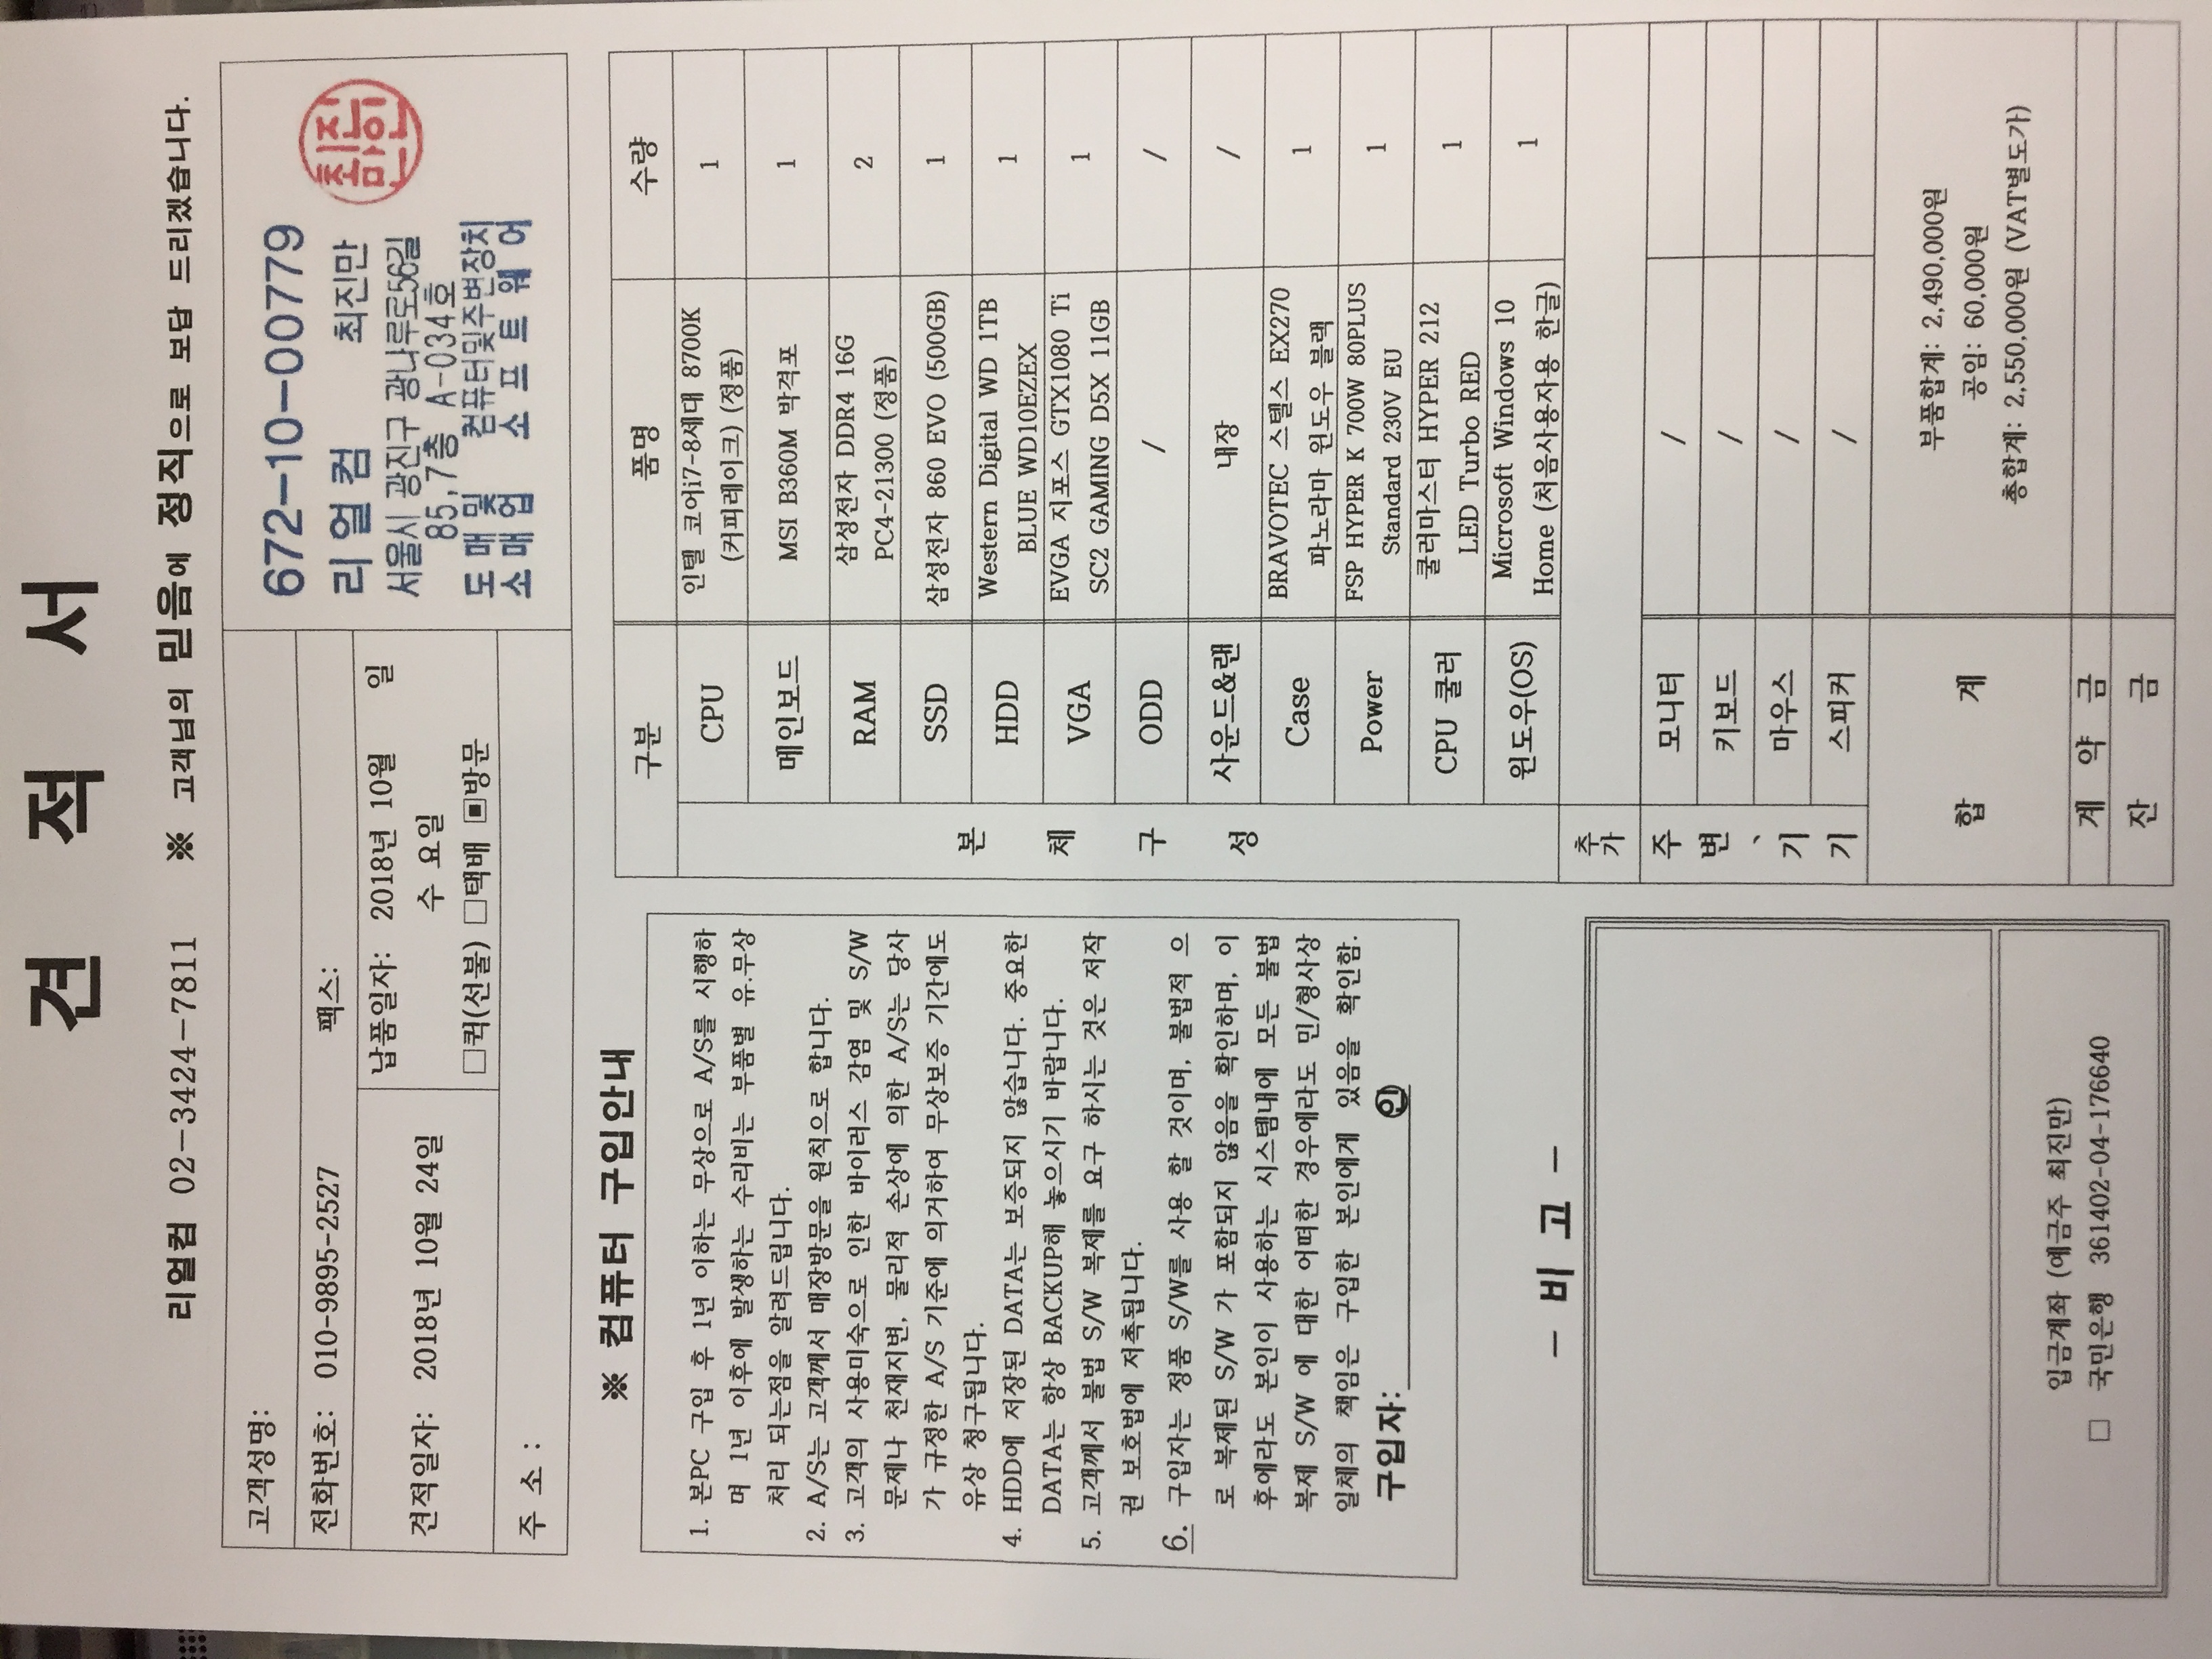 견 적 서
리얼컴 02-3424-7811 ※ 고객님의 믿음에 정직으로 보답 드리겠습니다.
고객성명:
전화번호: 010-9895-2527 팩스:
견적일자: 2018년 10월 24일
납품일자: 2018년 10월 일
수 요일
□퀵(선불) □택배 ▣방문
주 소 :
672-10-00779
리얼컴 최진만
서울시 광진구 광나루로56길
85,7층 A-034호
도매및 컴퓨터및주변장치
소매업 소프트웨어
※ 컴퓨터 구입안내
1. 본PC 구입 후 1년 이하는 무상으로 A/S를 시행하
며 1년 이후에 발생하는 수리비는 부품별 유.무상
처리 되는점을 알려드립니다.
2. A/S는 고객께서 매장방문을 원칙으로 합니다.
3. 고객의 사용미숙으로 인한 바이러스 감염 및 S/W
문제나 천재지변, 물리적 손상에 의한 A/S는 당사
가 규정한 A/S 기준에 의거하여 무상보증 기간에도
유상 청구됩니다.
4. HDD에 저장된 DATA는 보증되지 않습니다. 중요한
DATA는 항상 BACKUP해 놓으시기 바랍니다.
5. 고객께서 불법 S/W 복제를 요구 하시는 것은 저작
권 보호법에 저촉됩니다.
6. 구입자는 정품 S/W를 사용 할 것이며, 불법적 으
로 복제된 S/W 가 포함되지 않음을 확인하며, 이
후에라도 본인이 사용하는 시스템내에 모든 불법
복제 S/W 에 대한 어떠한 경우에라도 민/형사상
일체의 책임은 구입한 본인에게 있음을 확인함.
구입자: ㊞
- 비 고 -
입금계좌 (예금주 최진만)
□ 국민은행 361402-04-176640
구분 품명 수량
본 체 구 성
CPU 인텔 코어i7-8세대 8700K 1
(커피레이크) (정품)
메인보드 MSI B360M 박격포 1
RAM 삼성전자 DDR4 16G 2
PC4-21300 (정품)
SSD 삼성전자 860 EVO (500GB) 1
HDD Western Digital WD 1TB 1
BLUE WD10EZEX
VGA EVGA 지포스 GTX1080 Ti 1
SC2 GAMING D5X 11GB
ODD / /
사운드&랜 내장 /
Case BRAVOTEC 스텔스 EX270 1
파노라마 윈도우 블랙
Power FSP HYPER K 700W 80PLUS 1
Standard 230V EU
CPU 쿨러 쿨러마스터 HYPER 212 1
LED Turbo RED
윈도우(OS) Microsoft Windows 10 1
Home (처음사용자용 한글)
추가
주 변 、 기 기
모니터 /
키보드 /
마우스 /
스피커 /
합 계
부품합계: 2,490,000원
공임: 60,000원
총합계: 2,550,000원 (VAT별도가)
계 약 금
잔 금